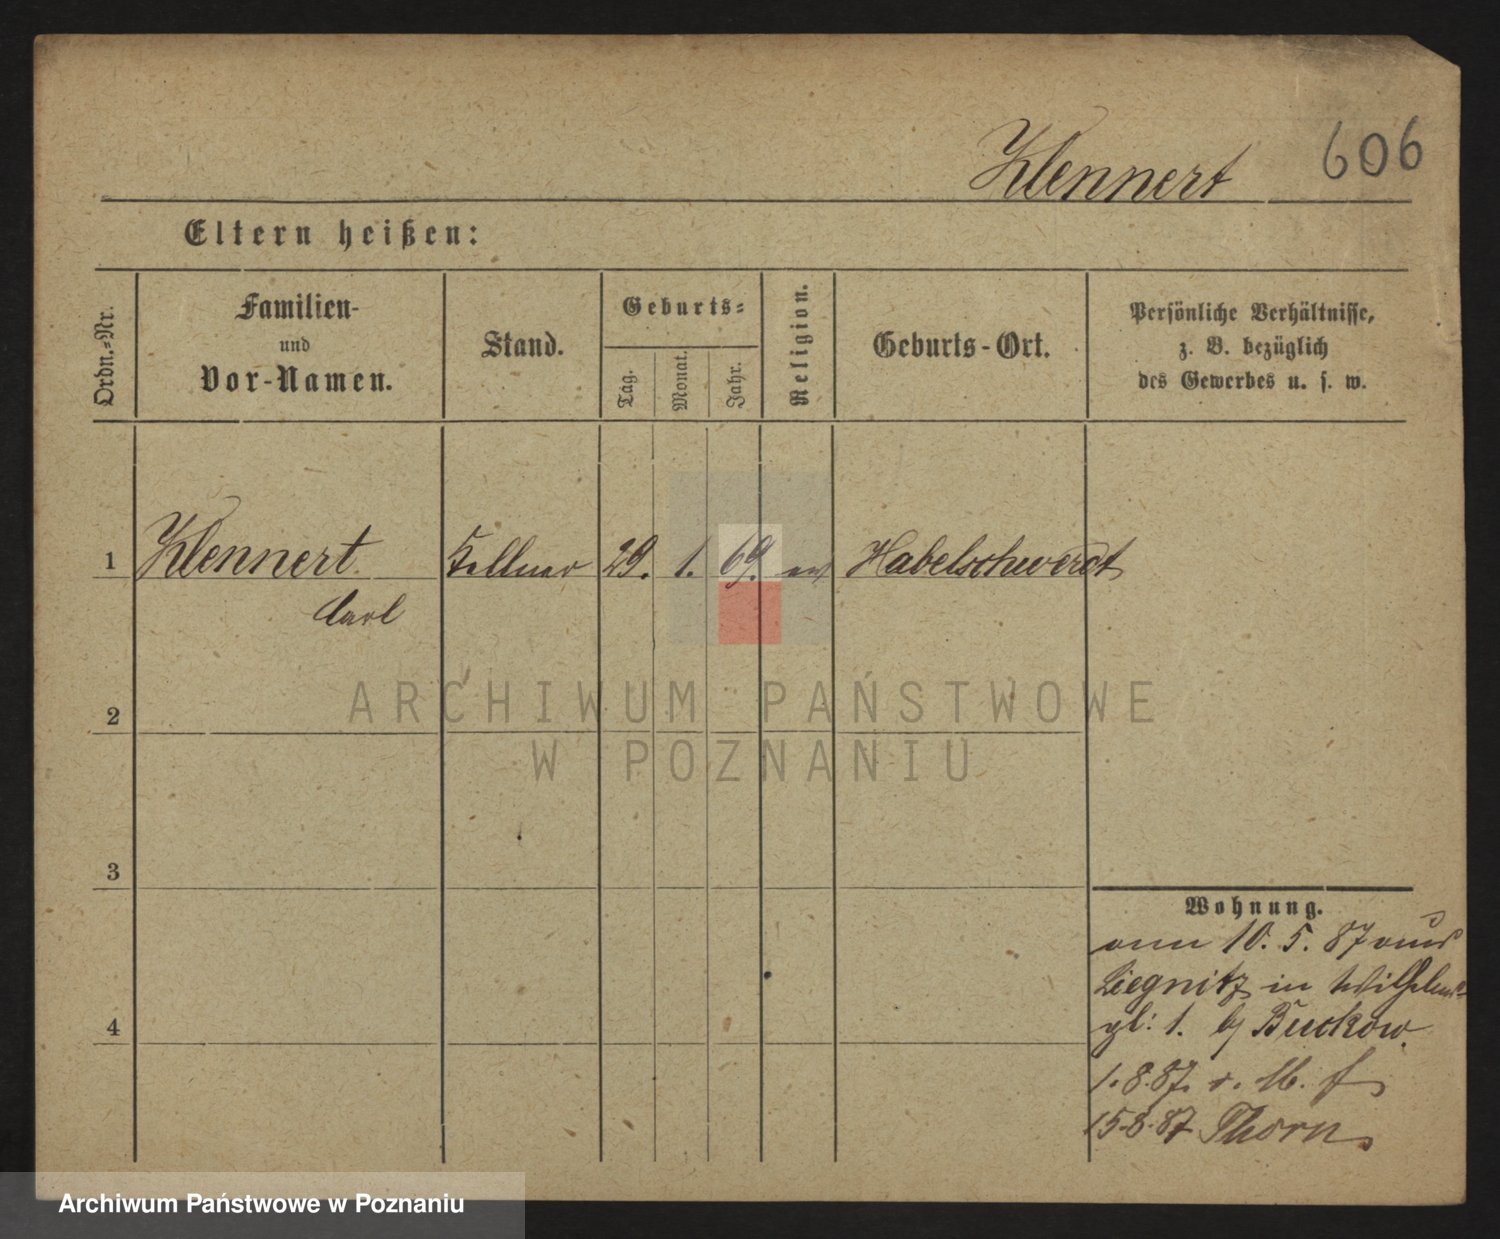 Klennert 606
Eltern heißen:
Ordn.-Nr.
Familien-
und
Vor-Namen.
Stand.
Geburts-
Tag.
Monat.
Jahr.
Religion.
Geburts-Ort.
Persönliche Verhältnisse,
z. B. bezüglich
des Gewerbes u. s. w.
1 Klennert Kellner 29. 1. 69. ev Habelschwerdt
Carl
2
3
4
Wohnung.
10. 5. 87 aus
Liegnitz in Wilhelms-
pl: 1. b/ Buckow.
1.8.87.
15.8.87 Thorn
ARCHIWUM PAŃSTWOWE
W POZNANIU
Archiwum Państwowe w Poznaniu